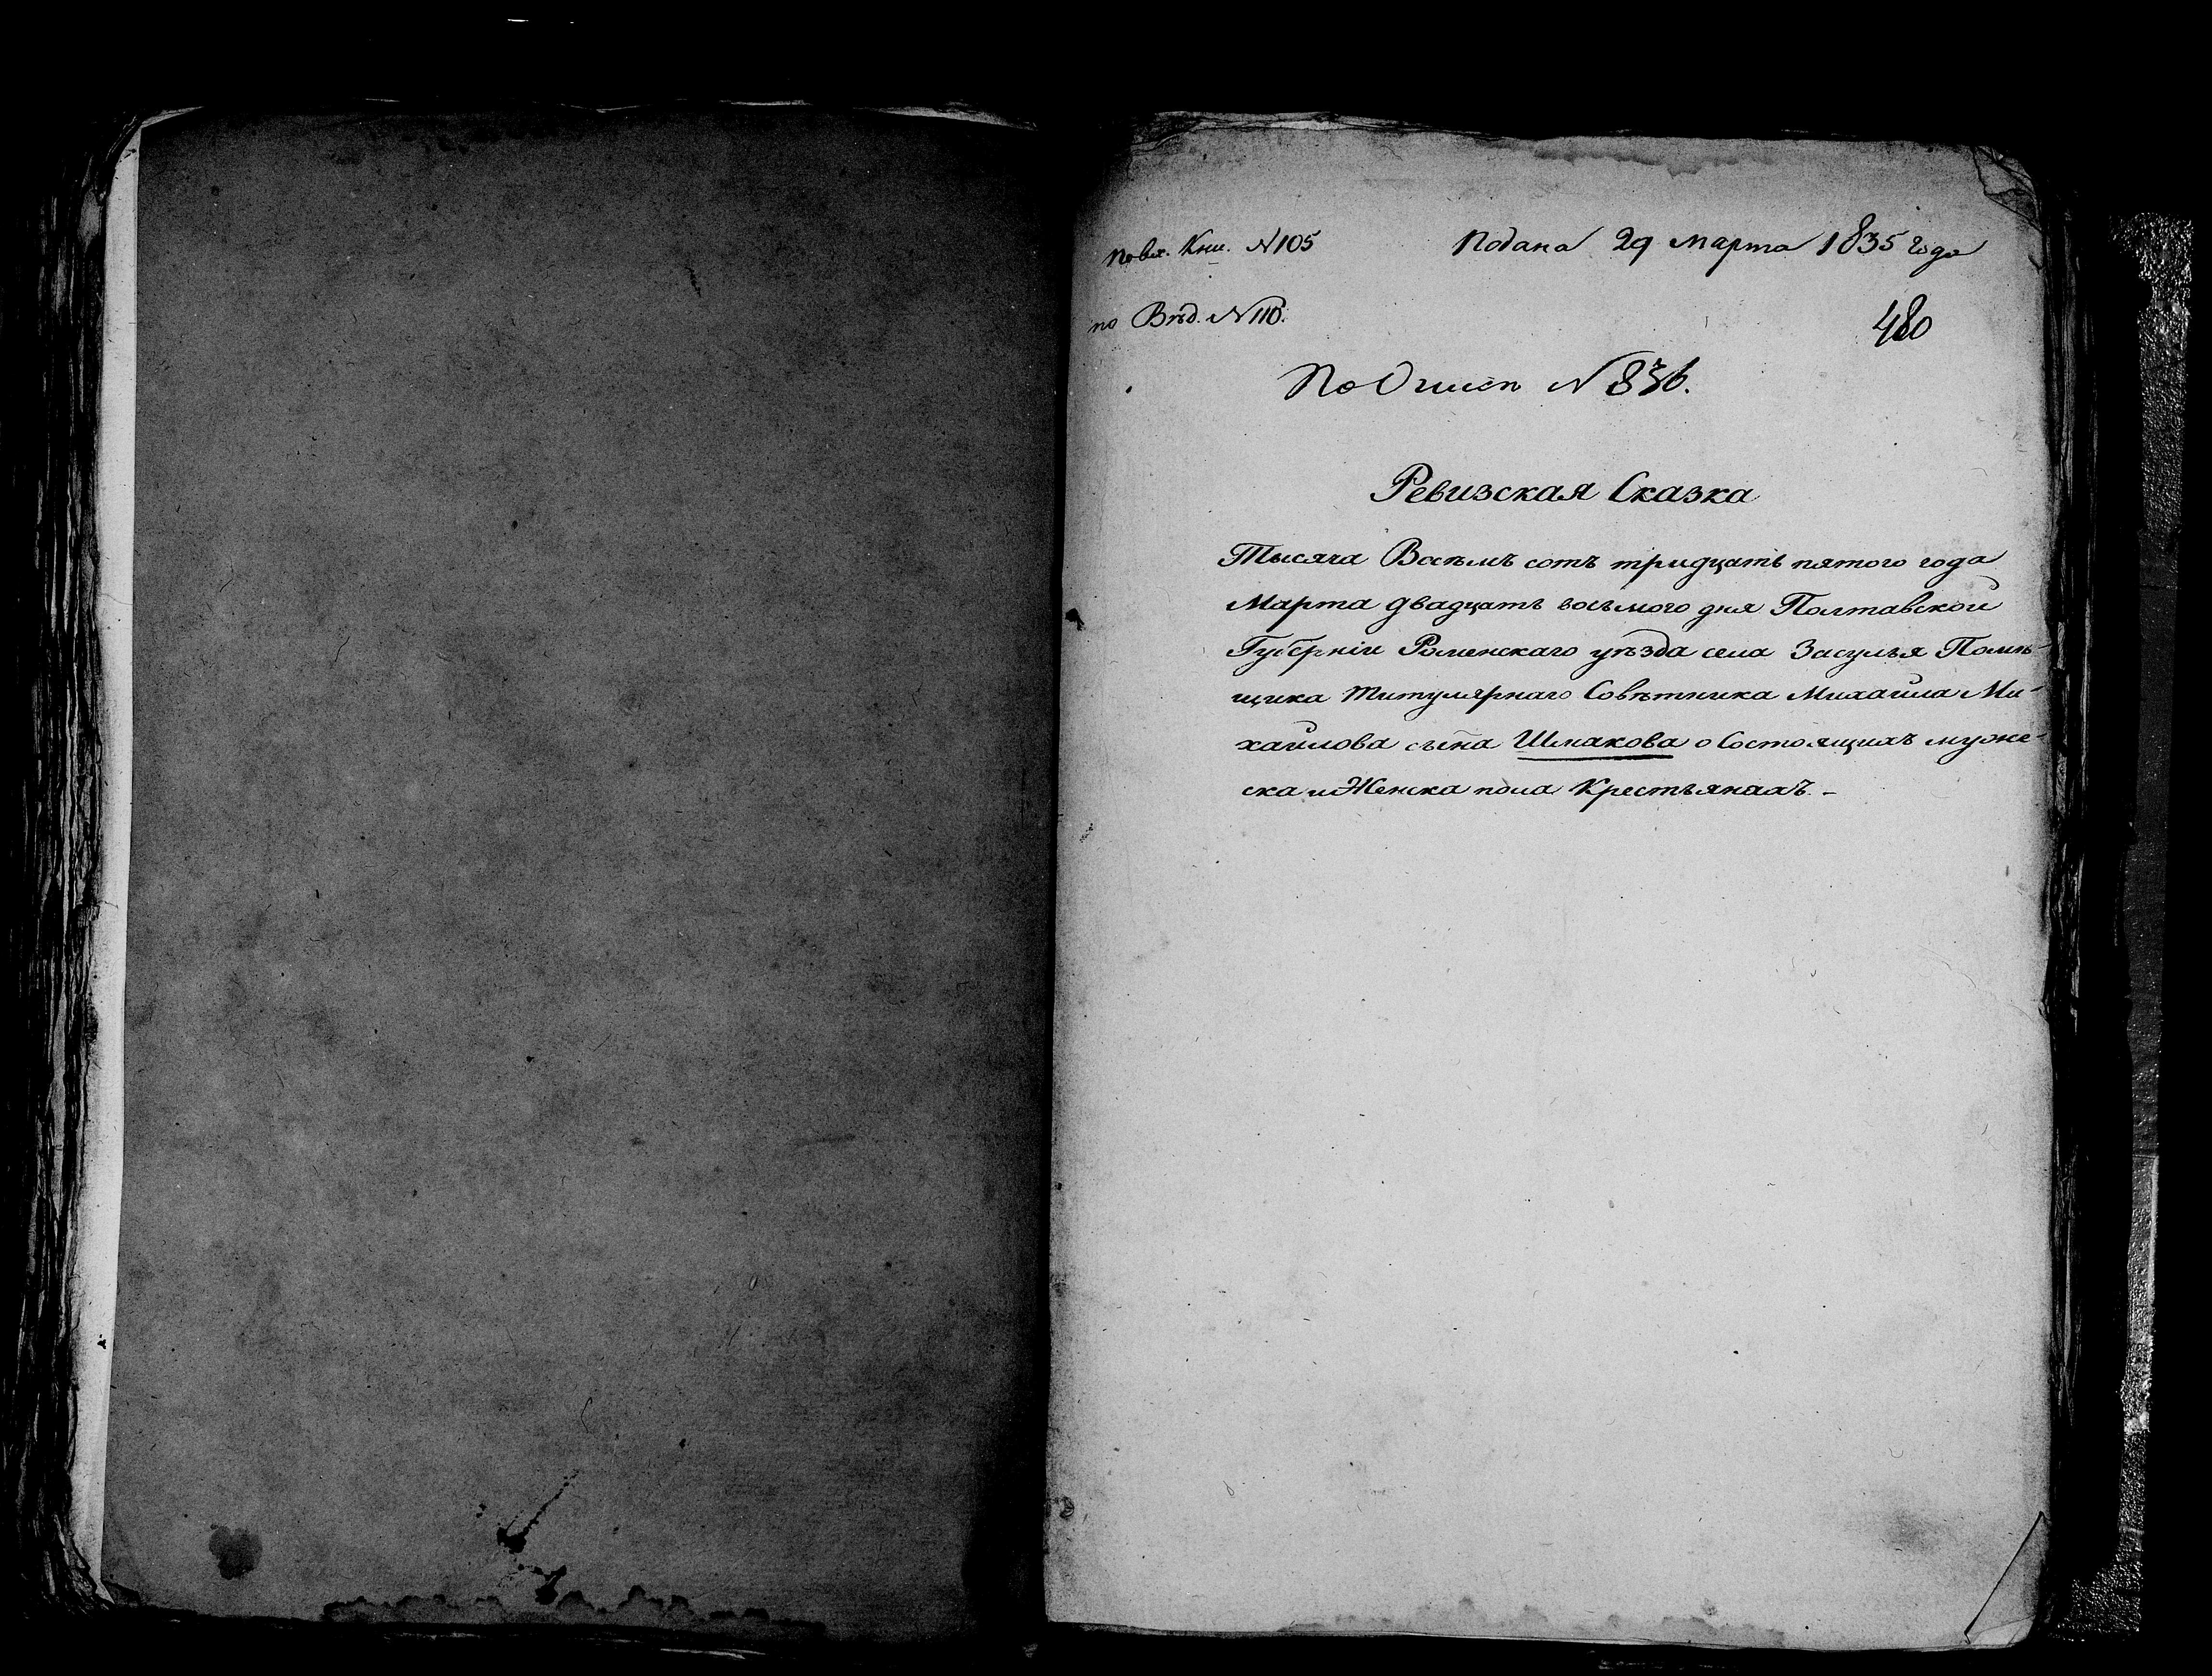 по вх. Кни. N 105
Подана 29 марта 1835 года
по Вѣд. N 110.
480
По Описи N 836.
Ревизская Сказка
Тысяча Восемъ сотъ тридцать пятого года
Марта двадцать восьмого дня Полтавской
Губерніи Роменскаго уѣзда села Засулья Помѣ-
щика Титулярнаго Совѣтника Михайла Ми-
хайлова сына Шмакова о Состоящихъ муже-
ска и Женска пола Крестьянахъ. -